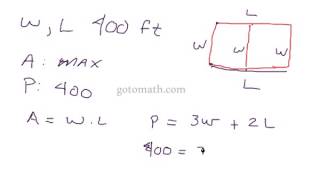 W, L 400 ft
L
W W W
L
A: max
P: 400
gotomath.com
A = W·L P = 3W + 2L
400 =